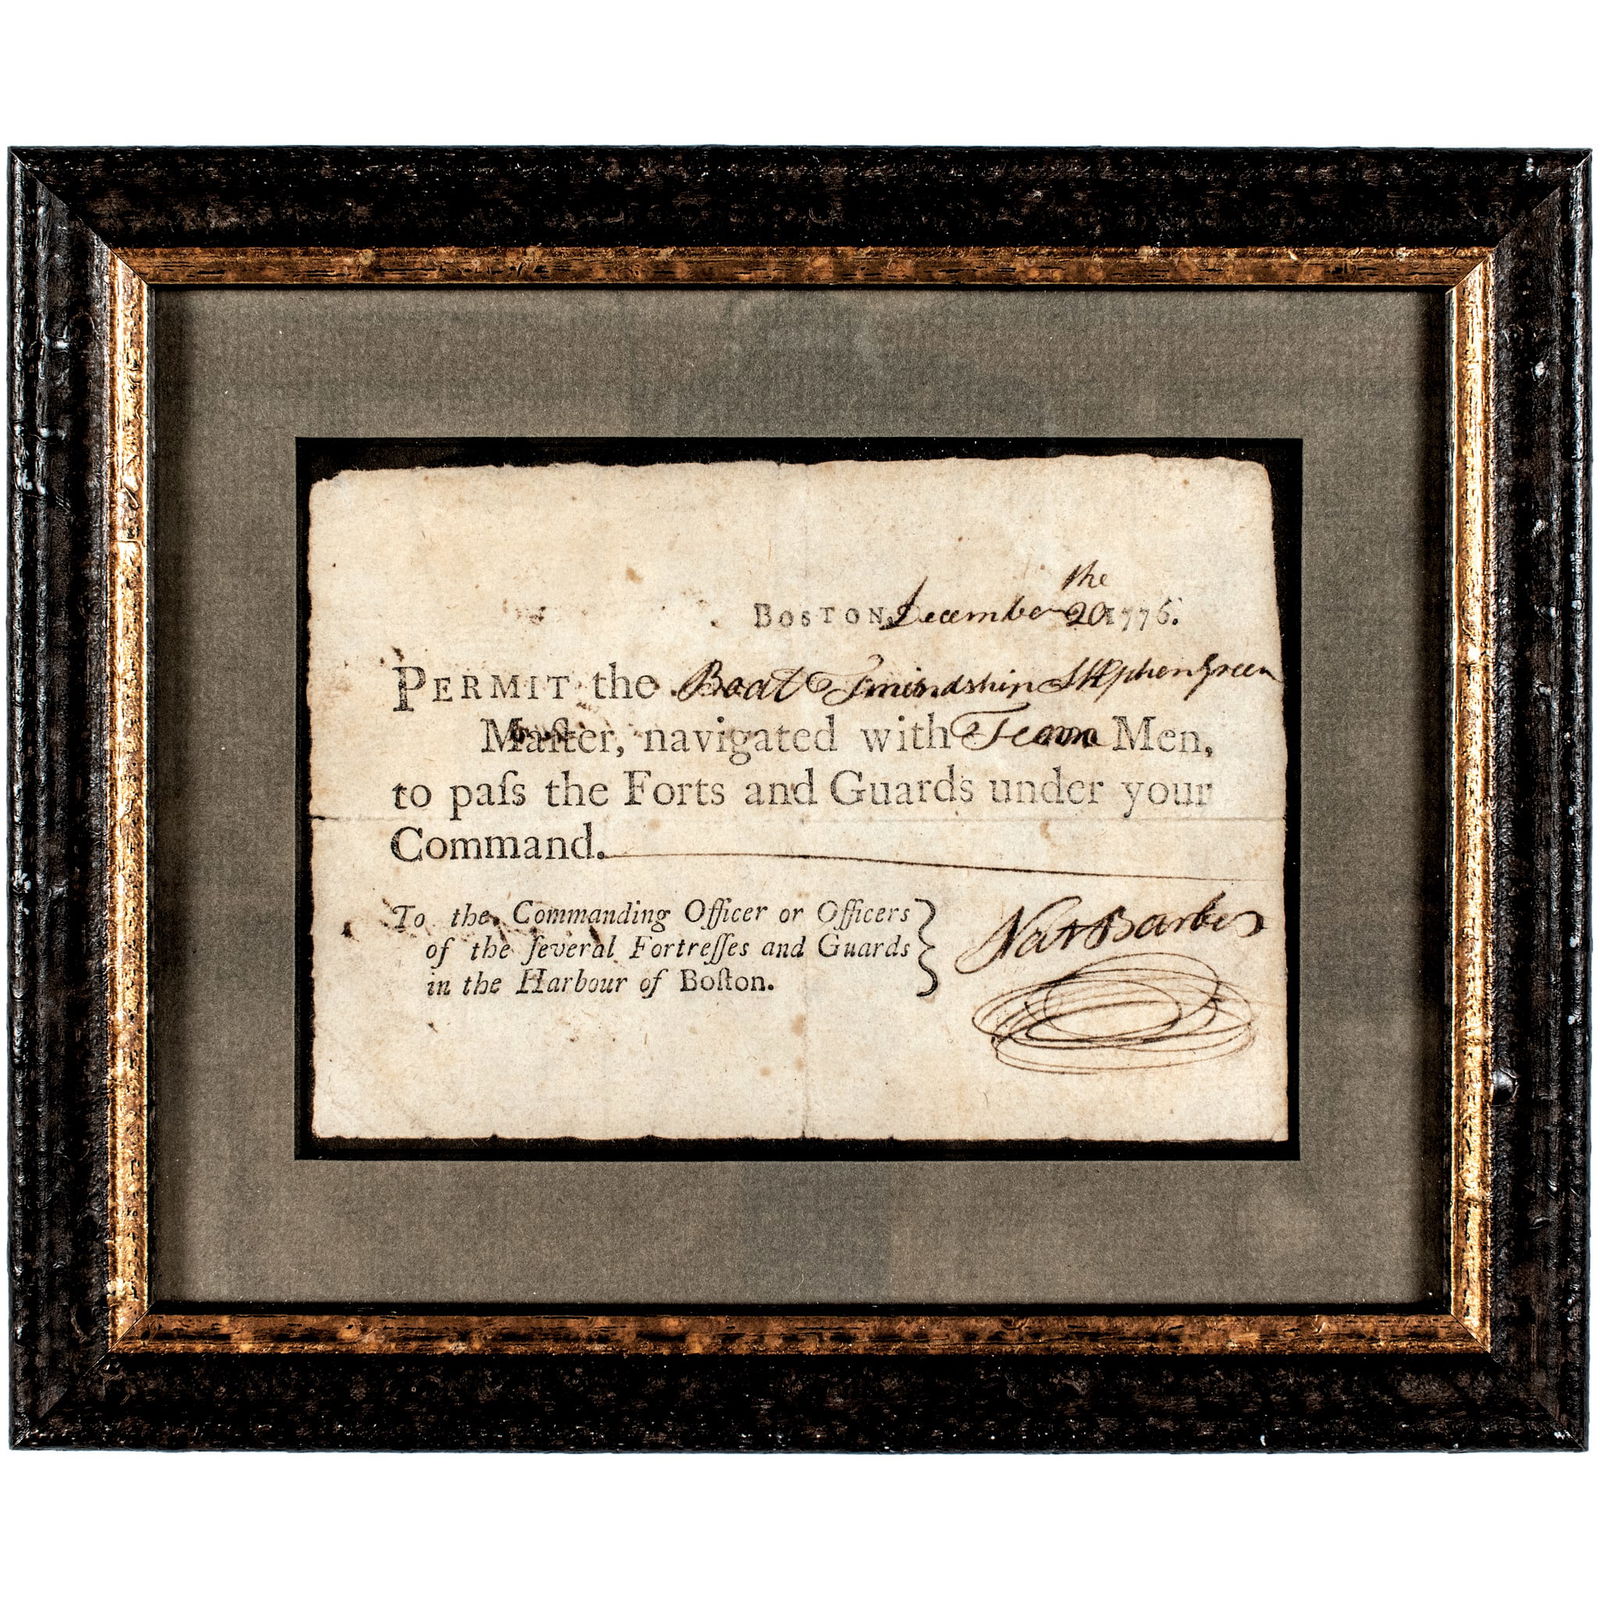 the
BOSTON, December 20 1776.
PERMIT the Boat Friendship Stephen Green
Maſter, navigated with Men,
to paſs the Forts and Guards under your
Command.
To the Commanding Officer or Officers
of the ſeveral Fortreſſes and Guards
in the Harbour of Boſton.
Nat Barber